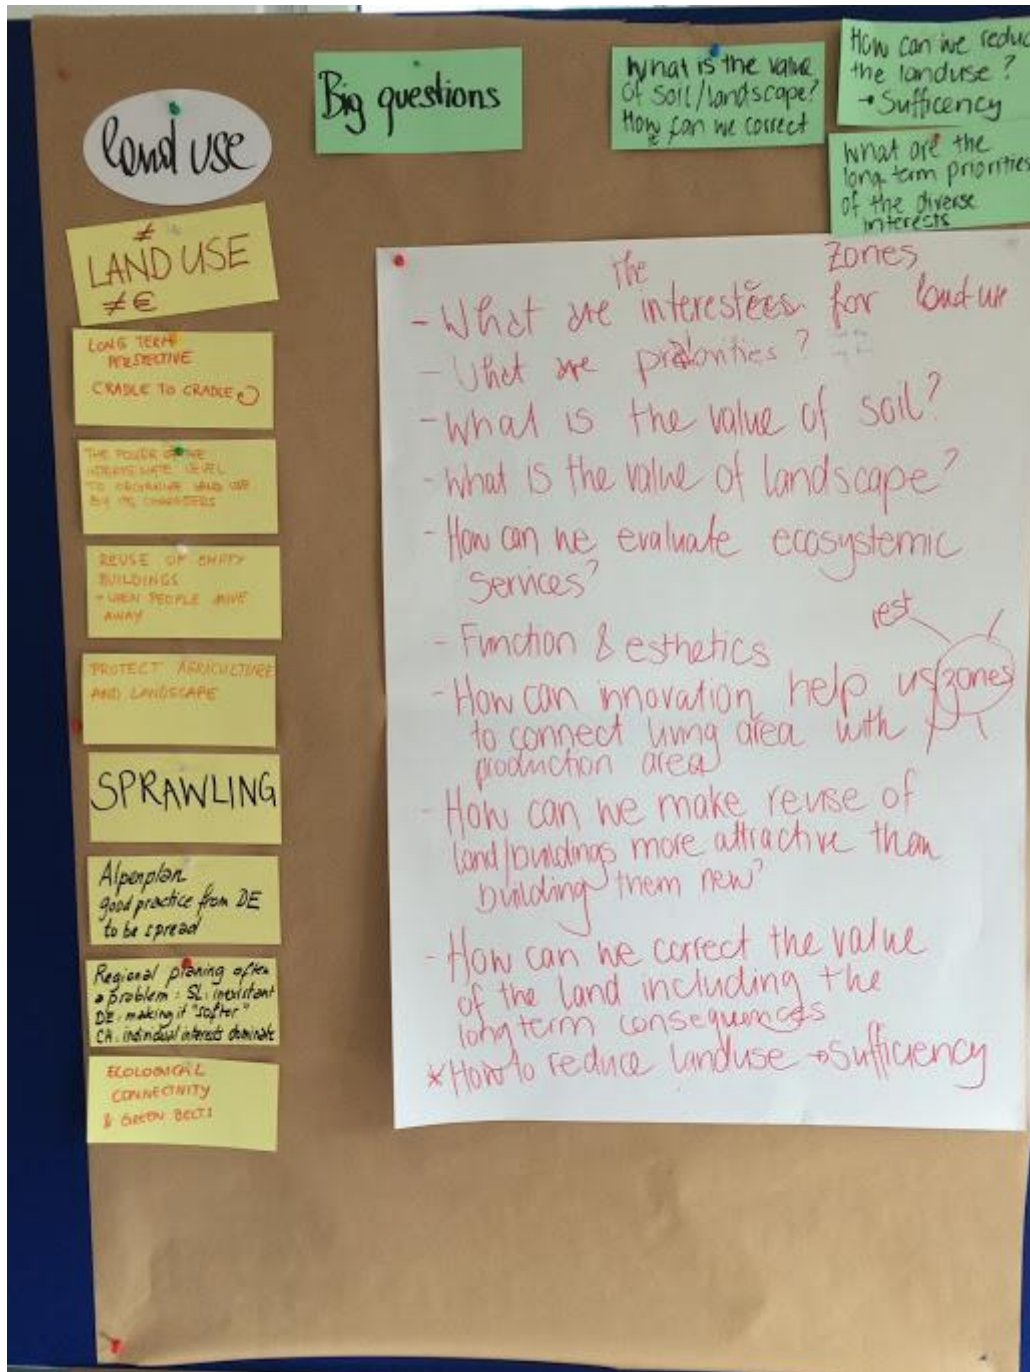 land use
Big questions
What is the value
of soil/landscape?
How can we correct
How can we reduc
the landuse?
→ Sufficency
What are the
long term priorities
of the diverse
interests
≠
LAND USE
≠ €
LONG TERM
PERSPECTIVE
CRADLE TO CRADLE
THE POWER OF THE
LEVEL
TO ORGANISE LAND USE
BY ITS
REUSE OF EMPTY
BUILDINGS
WHEN PEOPLE MOVE
AWAY
PROTECT AGRICULTURE
AND LANDSCAPE
SPRAWLING
Alpenplan
good practice from DE
to be spread
Regional planing often
a problem: SL: inexistant
DE: making it "softer"
CH: individual interests dominate
ECOLOGICAL
CONNECTIVITY
& GREEN BELTS
the zones
- What are interestees for land use
- What are priorities?
- What is the value of soil?
- What is the value of landscape?
- How can we evaluate ecosystemic
services?
- Function & esthetics
rest
- How can innovation help us zones
to connect living area with
production area
- How can we make reuse of
land/buildings more attractive than
building them new?
- How can we correct the value
of the land including the
longterm consequences
* How to reduce landuse → sufficiency